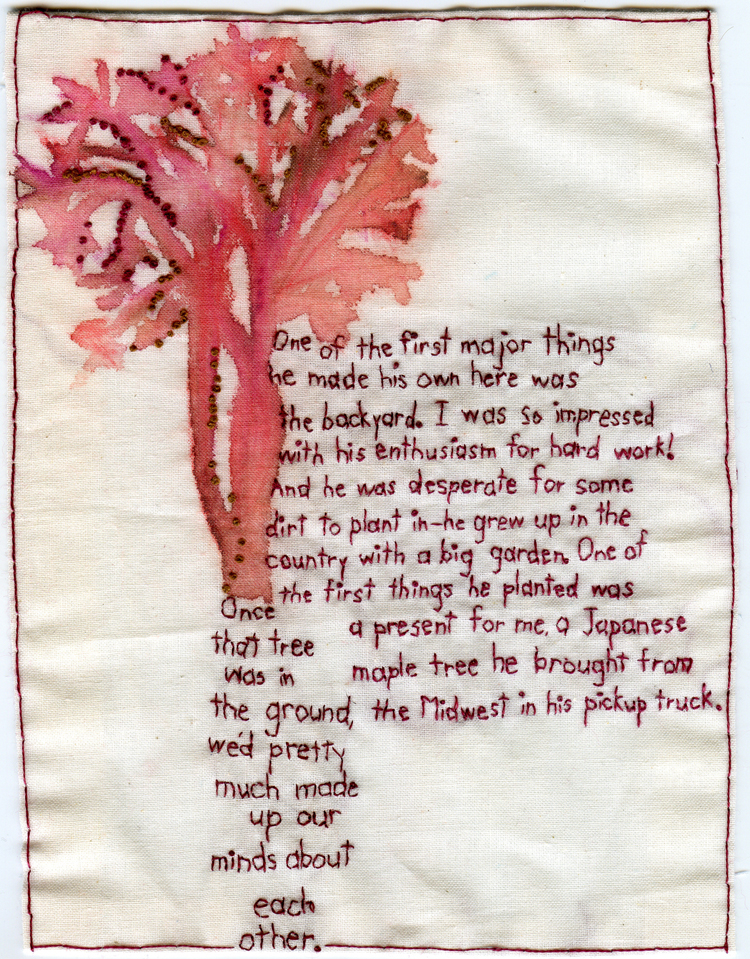 One of the first major things
he made his own here was
the backyard. I was so impressed
with his enthusiasm for hard work!
And he was desperate for some
dirt to plant in-he grew up in the
country with a big garden. One of
the first things he planted was
a present for me, a Japanese
maple tree he brought from
the Midwest in his pickup truck.
Once
that tree
was in
the ground,
we'd pretty
much made
up our
minds about
each
other.